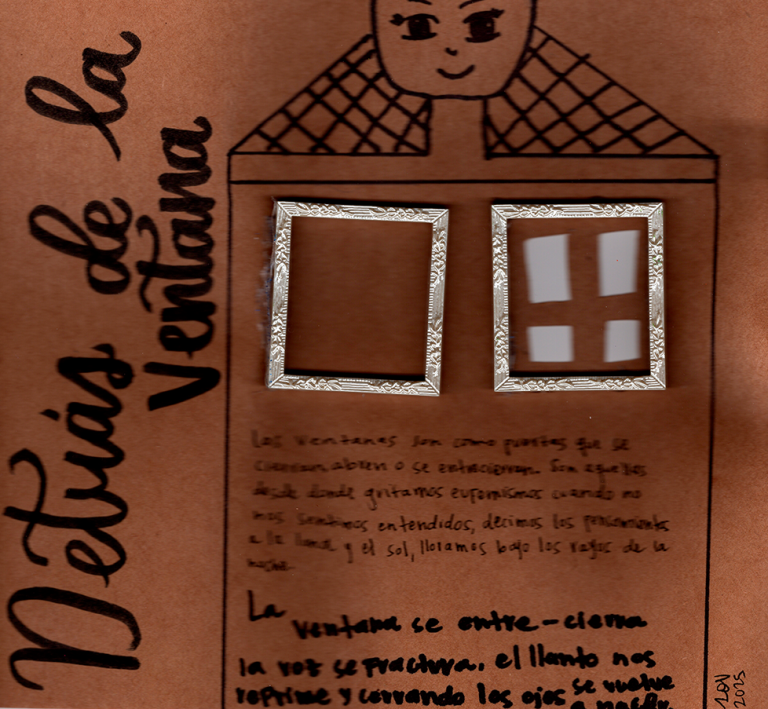 Detrás de la
Ventana
Las ventanas son como puertas que se
cierran abren o se entrecierran. Son aquellas
desde donde gritamos eufemismos cuando no
nos sentimos entendidos, decimos los pensamientos
a la luna y el sol, lloramos bajo los rayos de la
noche.
La
ventana se entre-cierra
la voz se fractura. el llanto nos
reprime y cerrando los ojos se vuelve
a nacer.
LOV
2025